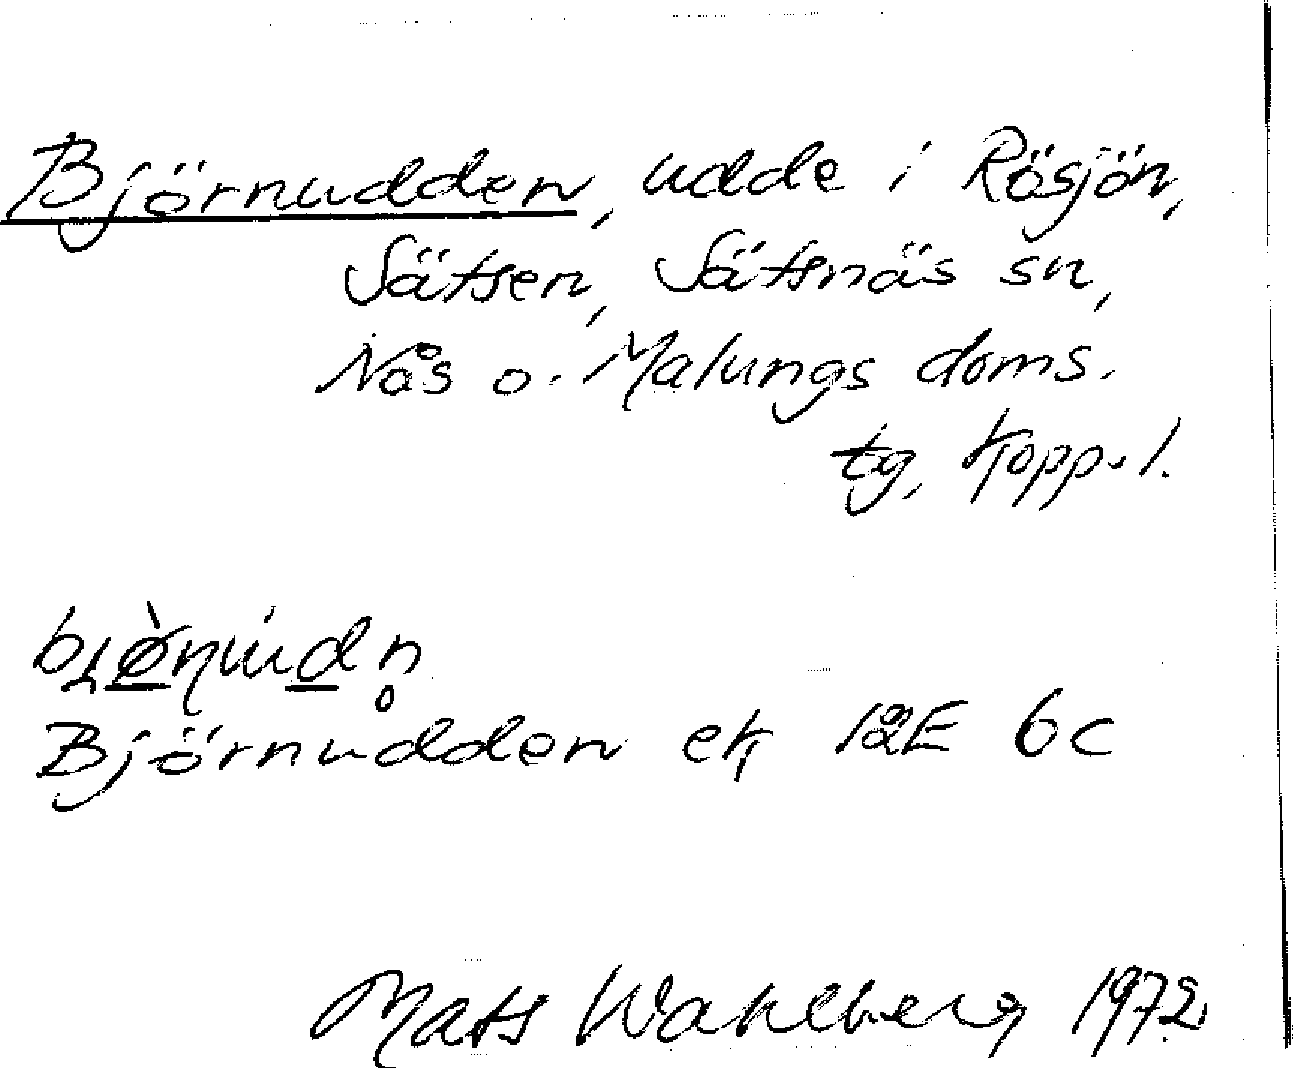 Björnudden, udde i Rösjön,
Sätsen, Sätsnäs sn,
Nås o. Malungs doms.
tg, Kopp. l.
Björnudden ek 12E 6c
Mats Wahlberg 1972